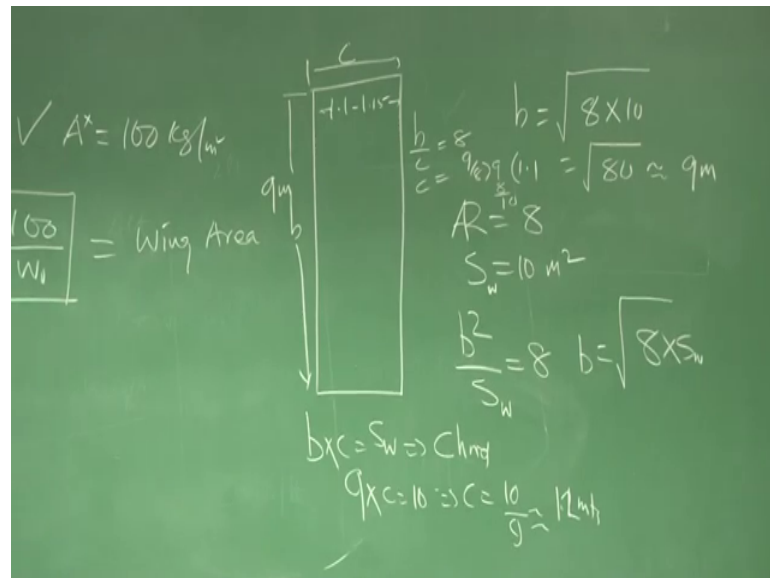 ✓ A* = 100 kg/m²
100 / W₀ = Wing Area
C
1.1-1.15
9m
b
b/c = 8
c = 9/8
b = √(8×10)
= √80 ≈ 9m
AR = 8
S_w = 10 m²
b²/S_w = 8 b = √(8×S_w)
b×c = S_w ⇒ Chord
9×c = 10 ⇒ c = 10/9 ≈ 1.2mts